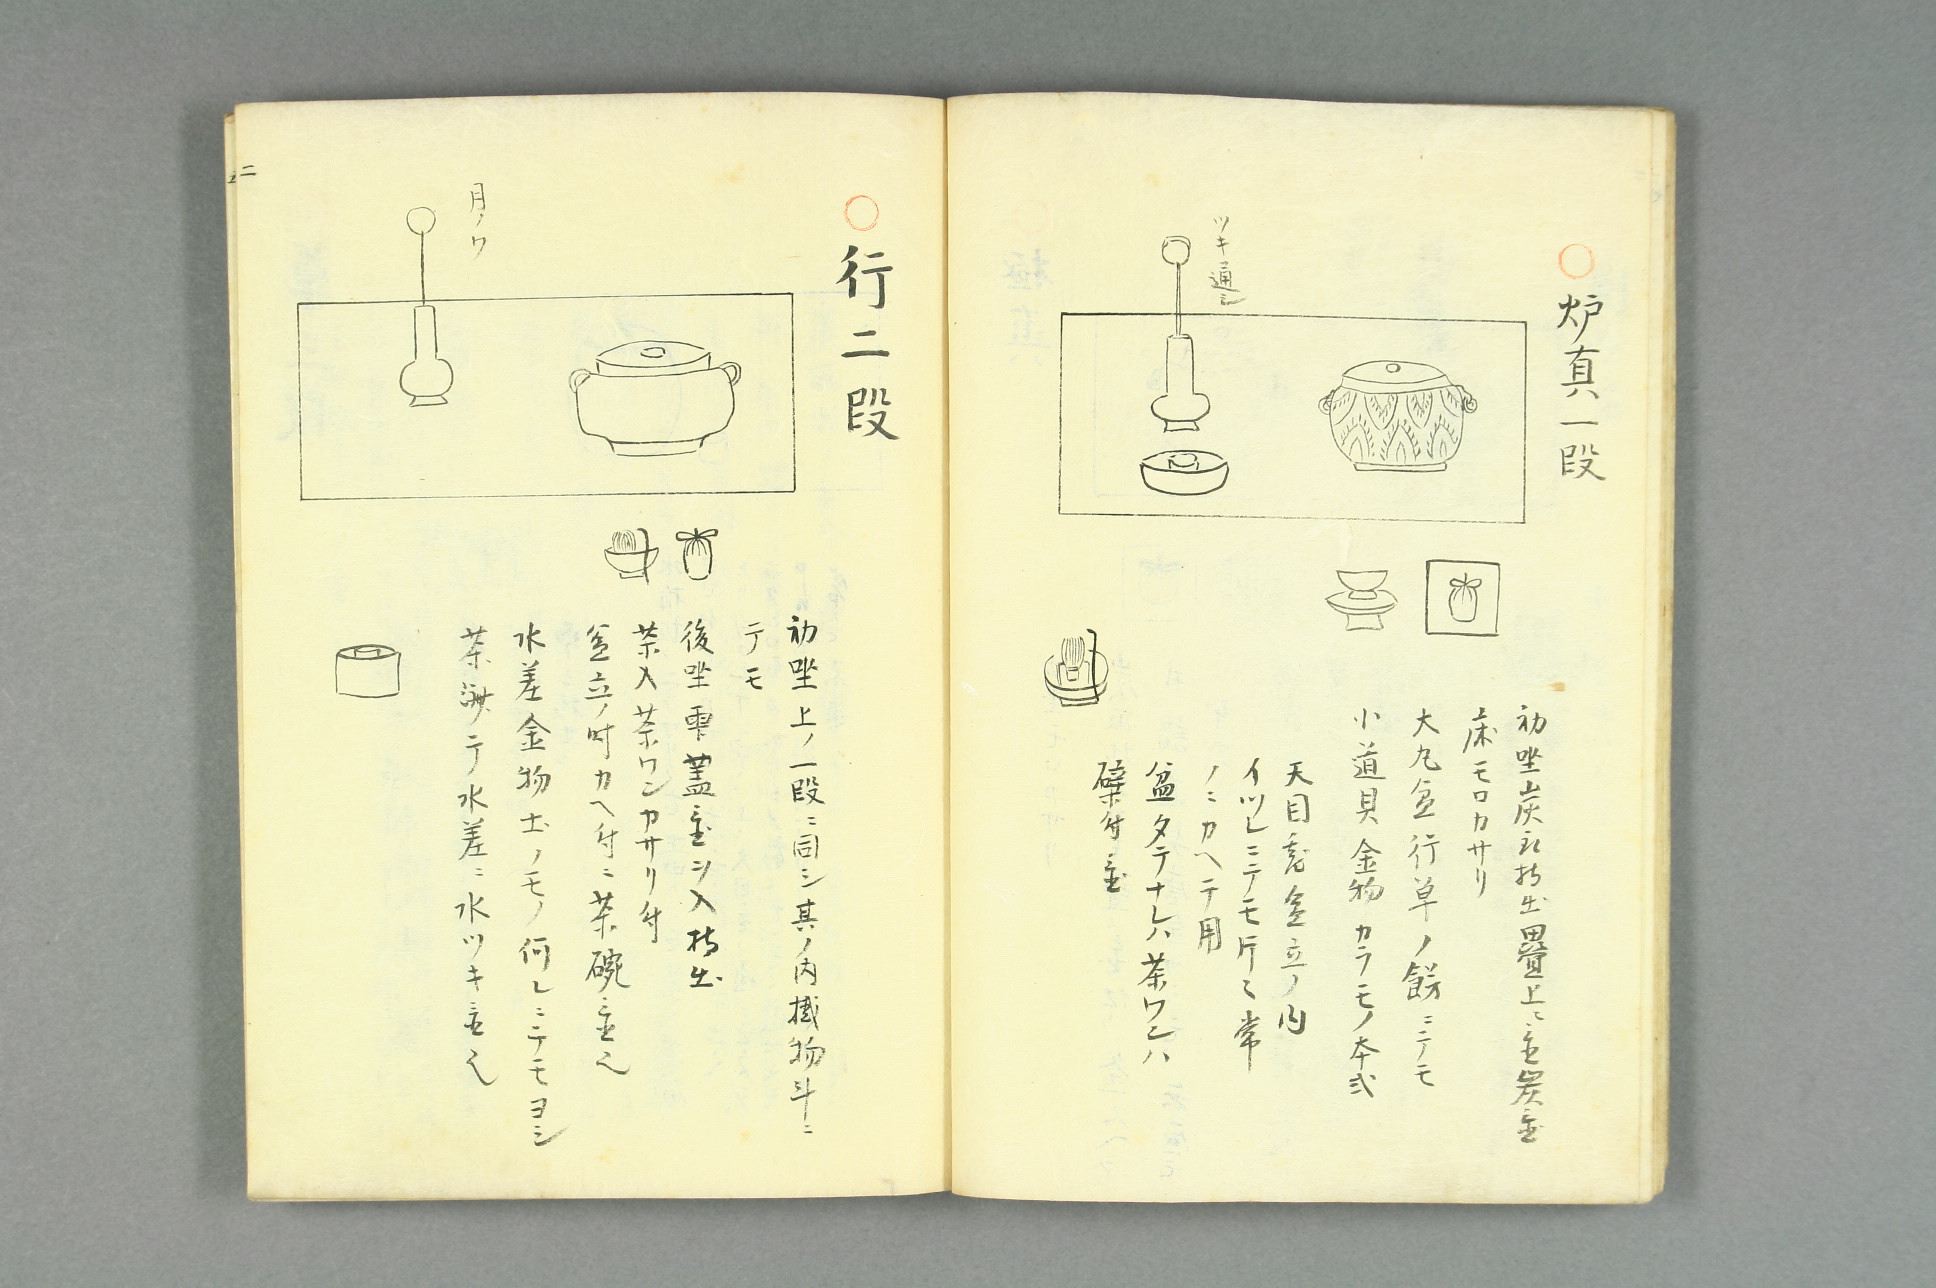 炉真一段
ツキ通シ
初坐炭取持出畳上ニ置炭置
床モロカサリ
大丸盆行草ノ餝ニテモ
小道具金物カラモノ本式
天目彫盆立ノ内
イツレニテモ斤〻常
ノニカヘテ用
盆タテナレハ茶ワンハ
襷付置
行二段
月ノワ
初坐上ノ一段ニ同シ其ノ内撼物斗ニ
テモ
後坐雫蓋置ヲ入持出
茶入茶ワンカサリ付
盆立ノ時カヘ付ニ茶碗置ヘ
水差金物土ノモノ何レニテモヨシ
茶済テ水差ニ水ツキ置ヘ
二